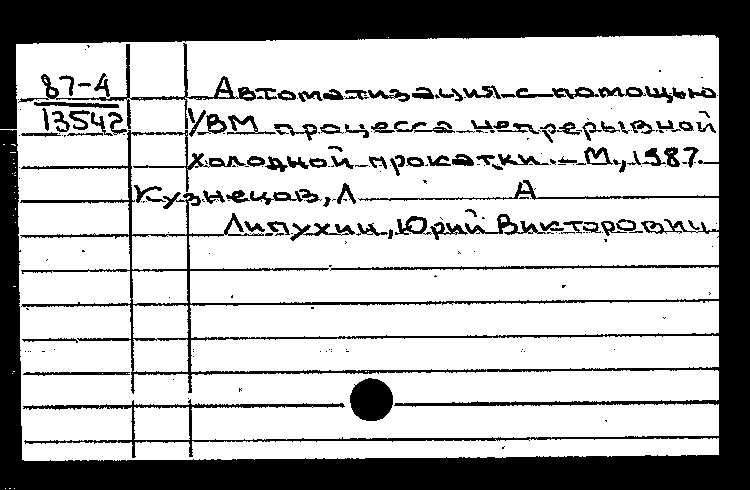 87-4 Автоматизация с помощью
13542 УВМ процесса непрерывной
холодной прокатки. – М., 1987.
Кузнецов, Л А
Липухин, Юрий Викторович